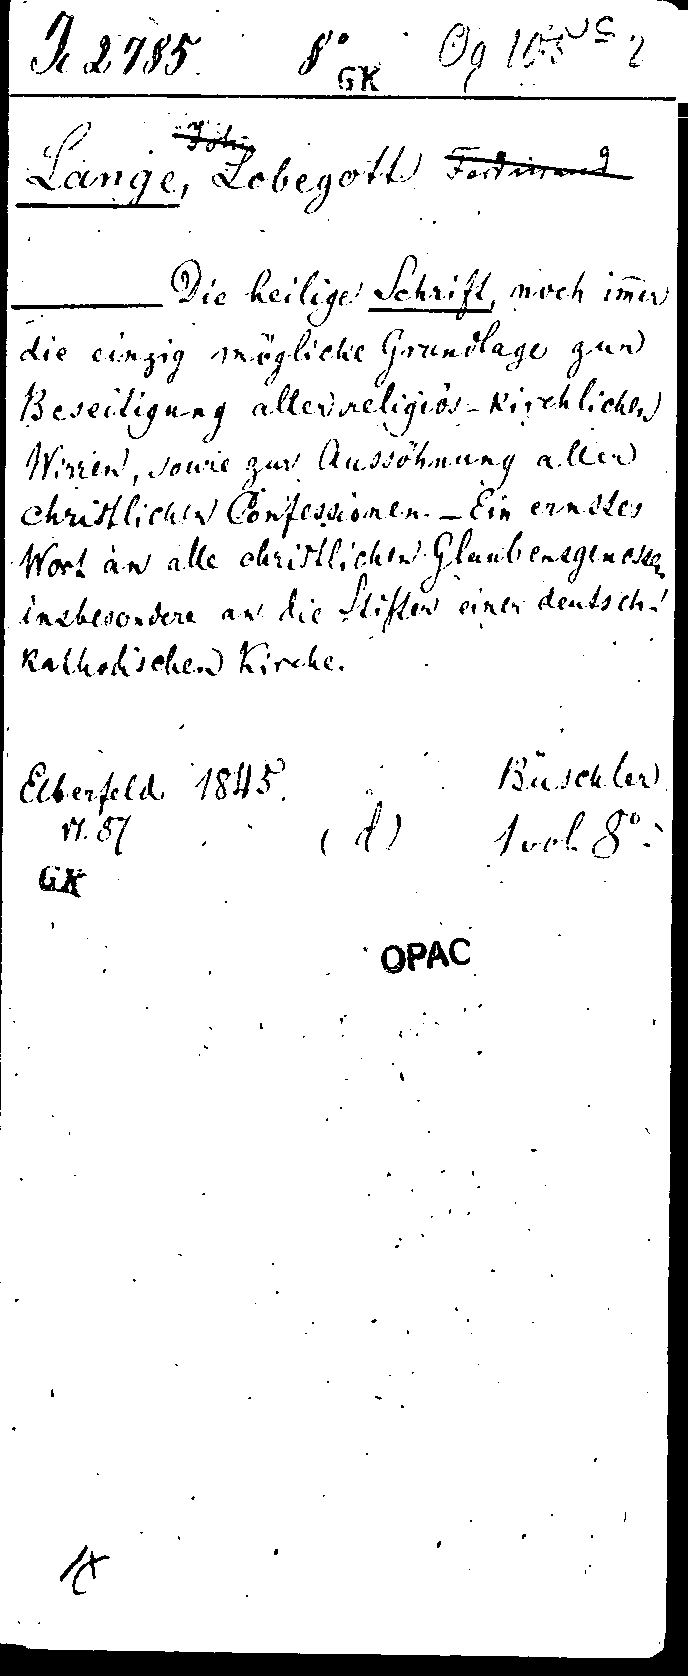 Jc 2785. 8° GK Og 1055
Joh.
Lange, Lobegott Ferdinand
Die heilige Schrift, noch im̄er
die einzig mögliche Grundlage zur
Beseitigung aller religiös-kirchlichen
Wirren, sowie zur Aussöhnung aller
christlichen Confessionen. - Ein ernstes
Wort an alle christlichen Glaubensgenossen
insbesondere an die Stifter einer deutsch-
katholischen Kirche.
Elberfeld 1845. Büschler
(d) 1 vol. 8°.
GK
OPAC